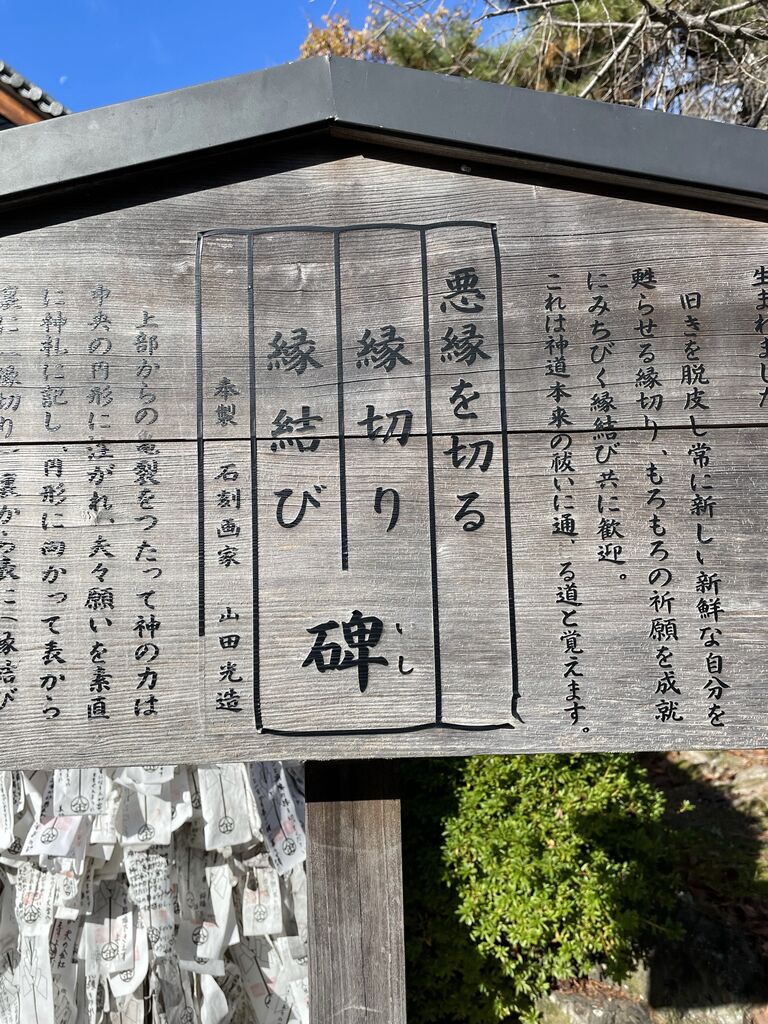 生まれました
旧きを脱皮し常に新しい新鮮な自分を
甦らせる縁切り、もろもろの祈願を成就
にみちびく縁結び共に歓迎。
これは神道本来の祓いに通ずる道と覚えます。
悪縁を切る
縁切り
縁結び
碑
いし
奉製 石刻画家 山田光造
上部からの亀裂をつたって神の力は
中央の円形に注がれ、夫々願いを素直
に神札に記し、円形に向かって表から
裏に〝縁切り〟裏から表に〝縁結び